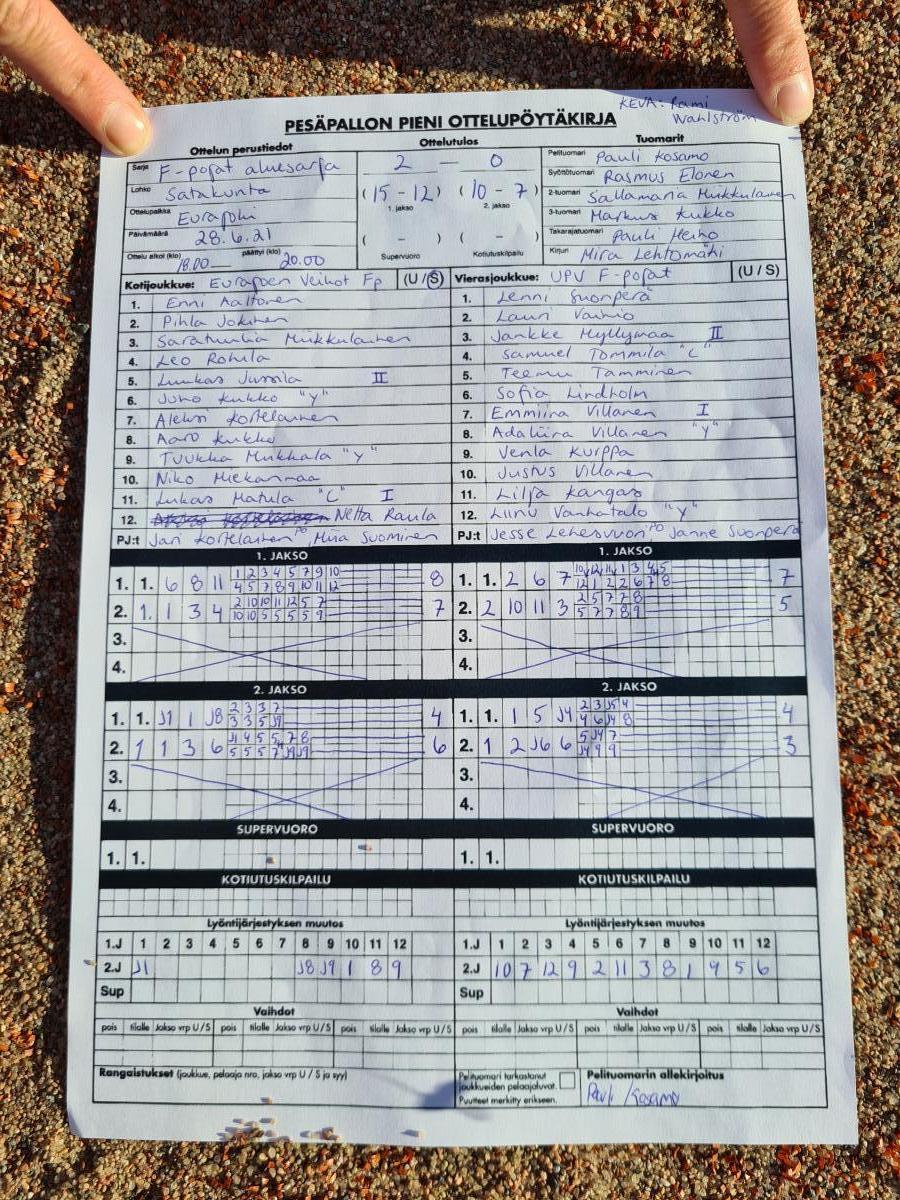 KEVA: Rami
Wahlström
PESÄPALLON PIENI OTTELUPÖYTÄKIRJA
Ottelun perustiedot
Sarja F-pojat aluesarja
Lohko Satakunta
Ottelupaikka Eurajoki
Päivämäärä 28.6.21
Ottelu alkoi (klo) 18.00 päättyi (klo) 20.00
Ottelutulos
2 - 0
(15 - 12) (10 - 7)
1. jakso 2. jakso
( - ) ( - )
Supervuoro Kotiutuskilpailu
Tuomarit
Pelituomari Pauli Kosamo
Syöttötuomari Rasmus Elonen
2-tuomari Sallamaria Mukkulainen
3-tuomari Markus Kukko
Takarajatuomari Pauli Heiho
Kirjuri Mira Lehtomäki
Kotijoukkue: Eurajoen Veikot Fp (U/S)
1. Enni Aaltonen
2. Pihla Jokinen
3. Saratuulia Mukkulainen
4. Leo Rohula
5. Luukas Jussila II
6. Juho Kukko "Y"
7. Aleksi Kortelainen
8. Aaro Kukko
9. Tuukka Mukkala "Y"
10. Niko Hiekanmaa
11. Lukas Matula "C" I
12. Netta Raula
PJ:t Jari Kortelainen PO, Miia Suominen
Vierasjoukkue: UPV F-pojat (U/S)
1. Lenni Suonperä
2. Lauri Vainio
3. Jankke Myllymaa II
4. Samuel Tommila "C"
5. Teemu Tamminen
6. Sofia Lindholm
7. Emmiina Villanen I
8. Adaliina Villanen "Y"
9. Venla Kurppa
10. Justus Villanen
11. Lilja Kangas
12. Liinu Vanhatalo "Y"
PJ:t Jesse Lehesvuori PO Janne Suonperä
1. JAKSO
1. 1. 6 8 11 1 2 3 4 5 7 9 10 8
4 5 7 8 9 10 11 12
2. 1. 1 3 4 2 10 10 11 12 5 7 7
10 10 5 5 5 5 9
3.
4.
1. JAKSO
1. 1. 2 6 7 7
2. 2 10 11 3 2 5 7 7 8 5
5 7 7 8 9
3.
4.
2. JAKSO
1. 1. J1 1 J8 2 3 3 7 4
3 3 5 J9
2. 1 1 3 6 J1 4 5 5 7 8 6
5 5 5 7 J9 J9
3.
4.
2. JAKSO
1. 1. 1 5 J4 2 3 J5 4 4
4 6 J4 8
2. 1 2 J6 6 5 J4 7 3
J4 9 9
3.
4.
SUPERVUORO
1. 1.
SUPERVUORO
1. 1.
KOTIUTUSKILPAILU
KOTIUTUSKILPAILU
Lyöntijärjestyksen muutos
1.J 1 2 3 4 5 6 7 8 9 10 11 12
2.J J1 J8 J9 1 8 9
Sup
Lyöntijärjestyksen muutos
1.J 1 2 3 4 5 6 7 8 9 10 11 12
2.J 10 7 12 9 2 11 3 8 1 9 5 6
Sup
Vaihdot
pois tilalle Jakso vrp U/S pois tilalle Jakso vrp U/S pois tilalle Jakso vrp U/S
Vaihdot
pois tilalle Jakso vrp U/S pois tilalle Jakso vrp U/S pois tilalle Jakso vrp U/S
Rangaistukset (joukkue, pelaaja nro, jakso vrp U / S ja syy)
Pelituomari tarkastanut
joukkueiden pelaajaluvat.
Puutteet merkitty erikseen.
Pelituomarin allekirjoitus
Pauli Kosamo